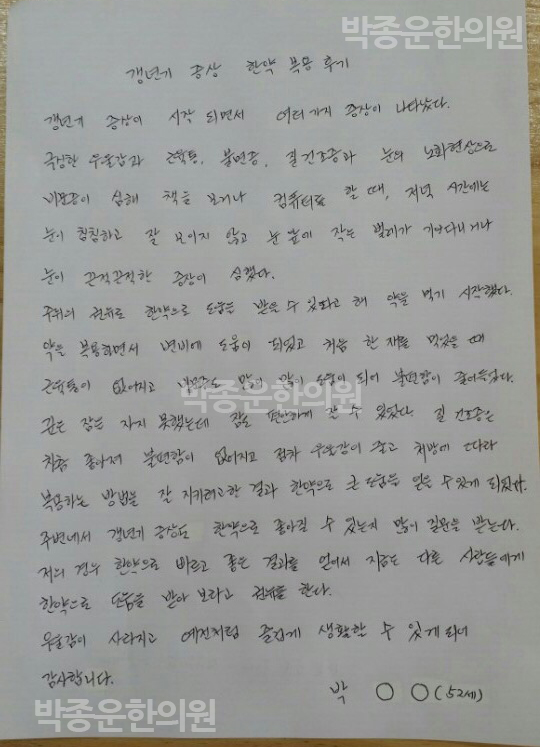 박종운한의원
갱년기 증상 한약 복용 후기
갱년기 증상이 시작 되면서 여러가지 증상이 나타났다.
극심한 우울감과 근육통, 불면증, 질건조증과 눈의 노화현상으로
비문증이 심해 책을 보거나 컴퓨터를 할 때, 저녁 시간에는
눈이 침침하고 잘 보이지 않고 눈 앞에 작은 벌레가 기어다니거나
눈이 끈적끈적한 증상이 심했다.
주위의 권유로 한약으로 도움을 받을 수 있다고 해 약을 먹기 시작했다.
약을 복용하면서 변비에 도움이 되었고 처음 한 재를 먹었을 때
근육통이 없어지고 많이 많이 도움이 되어 불편함이 줄어들었다.
깊은 잠은 자지 못했는데 잠도 편안하게 잘 수 있었다. 질 건조증은
차츰 좋아져 불편함이 없어지고 점차 우울감이 줄고 처방에 따라
복용하는 방법을 잘 지키려고한 결과 한약으로 큰 도움을 얻을 수 있게 되었다.
주변에서 갱년기 증상도 한약으로 좋아질 수 있는지 많이 질문을 받는다.
저의 경우 한약으로 빠르고 좋은 결과를 얻어서 지금도 다른 사람들에게
한약으로 도움을 받아 보라고 권유를 한다.
우울감이 사라지고 예전처럼 즐겁게 생활할 수 있게 되어
감사합니다.
박 ○ ○ (52세)
박종운한의원
박종운한의원